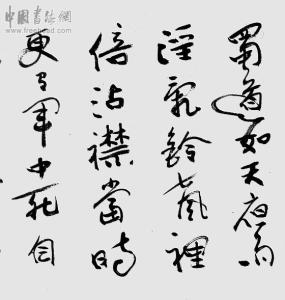 中國書法網
www.freehead.com
蜀道如天夜雨
淫亂鈴聲裡
倍沾襟當時
更有軍中死自